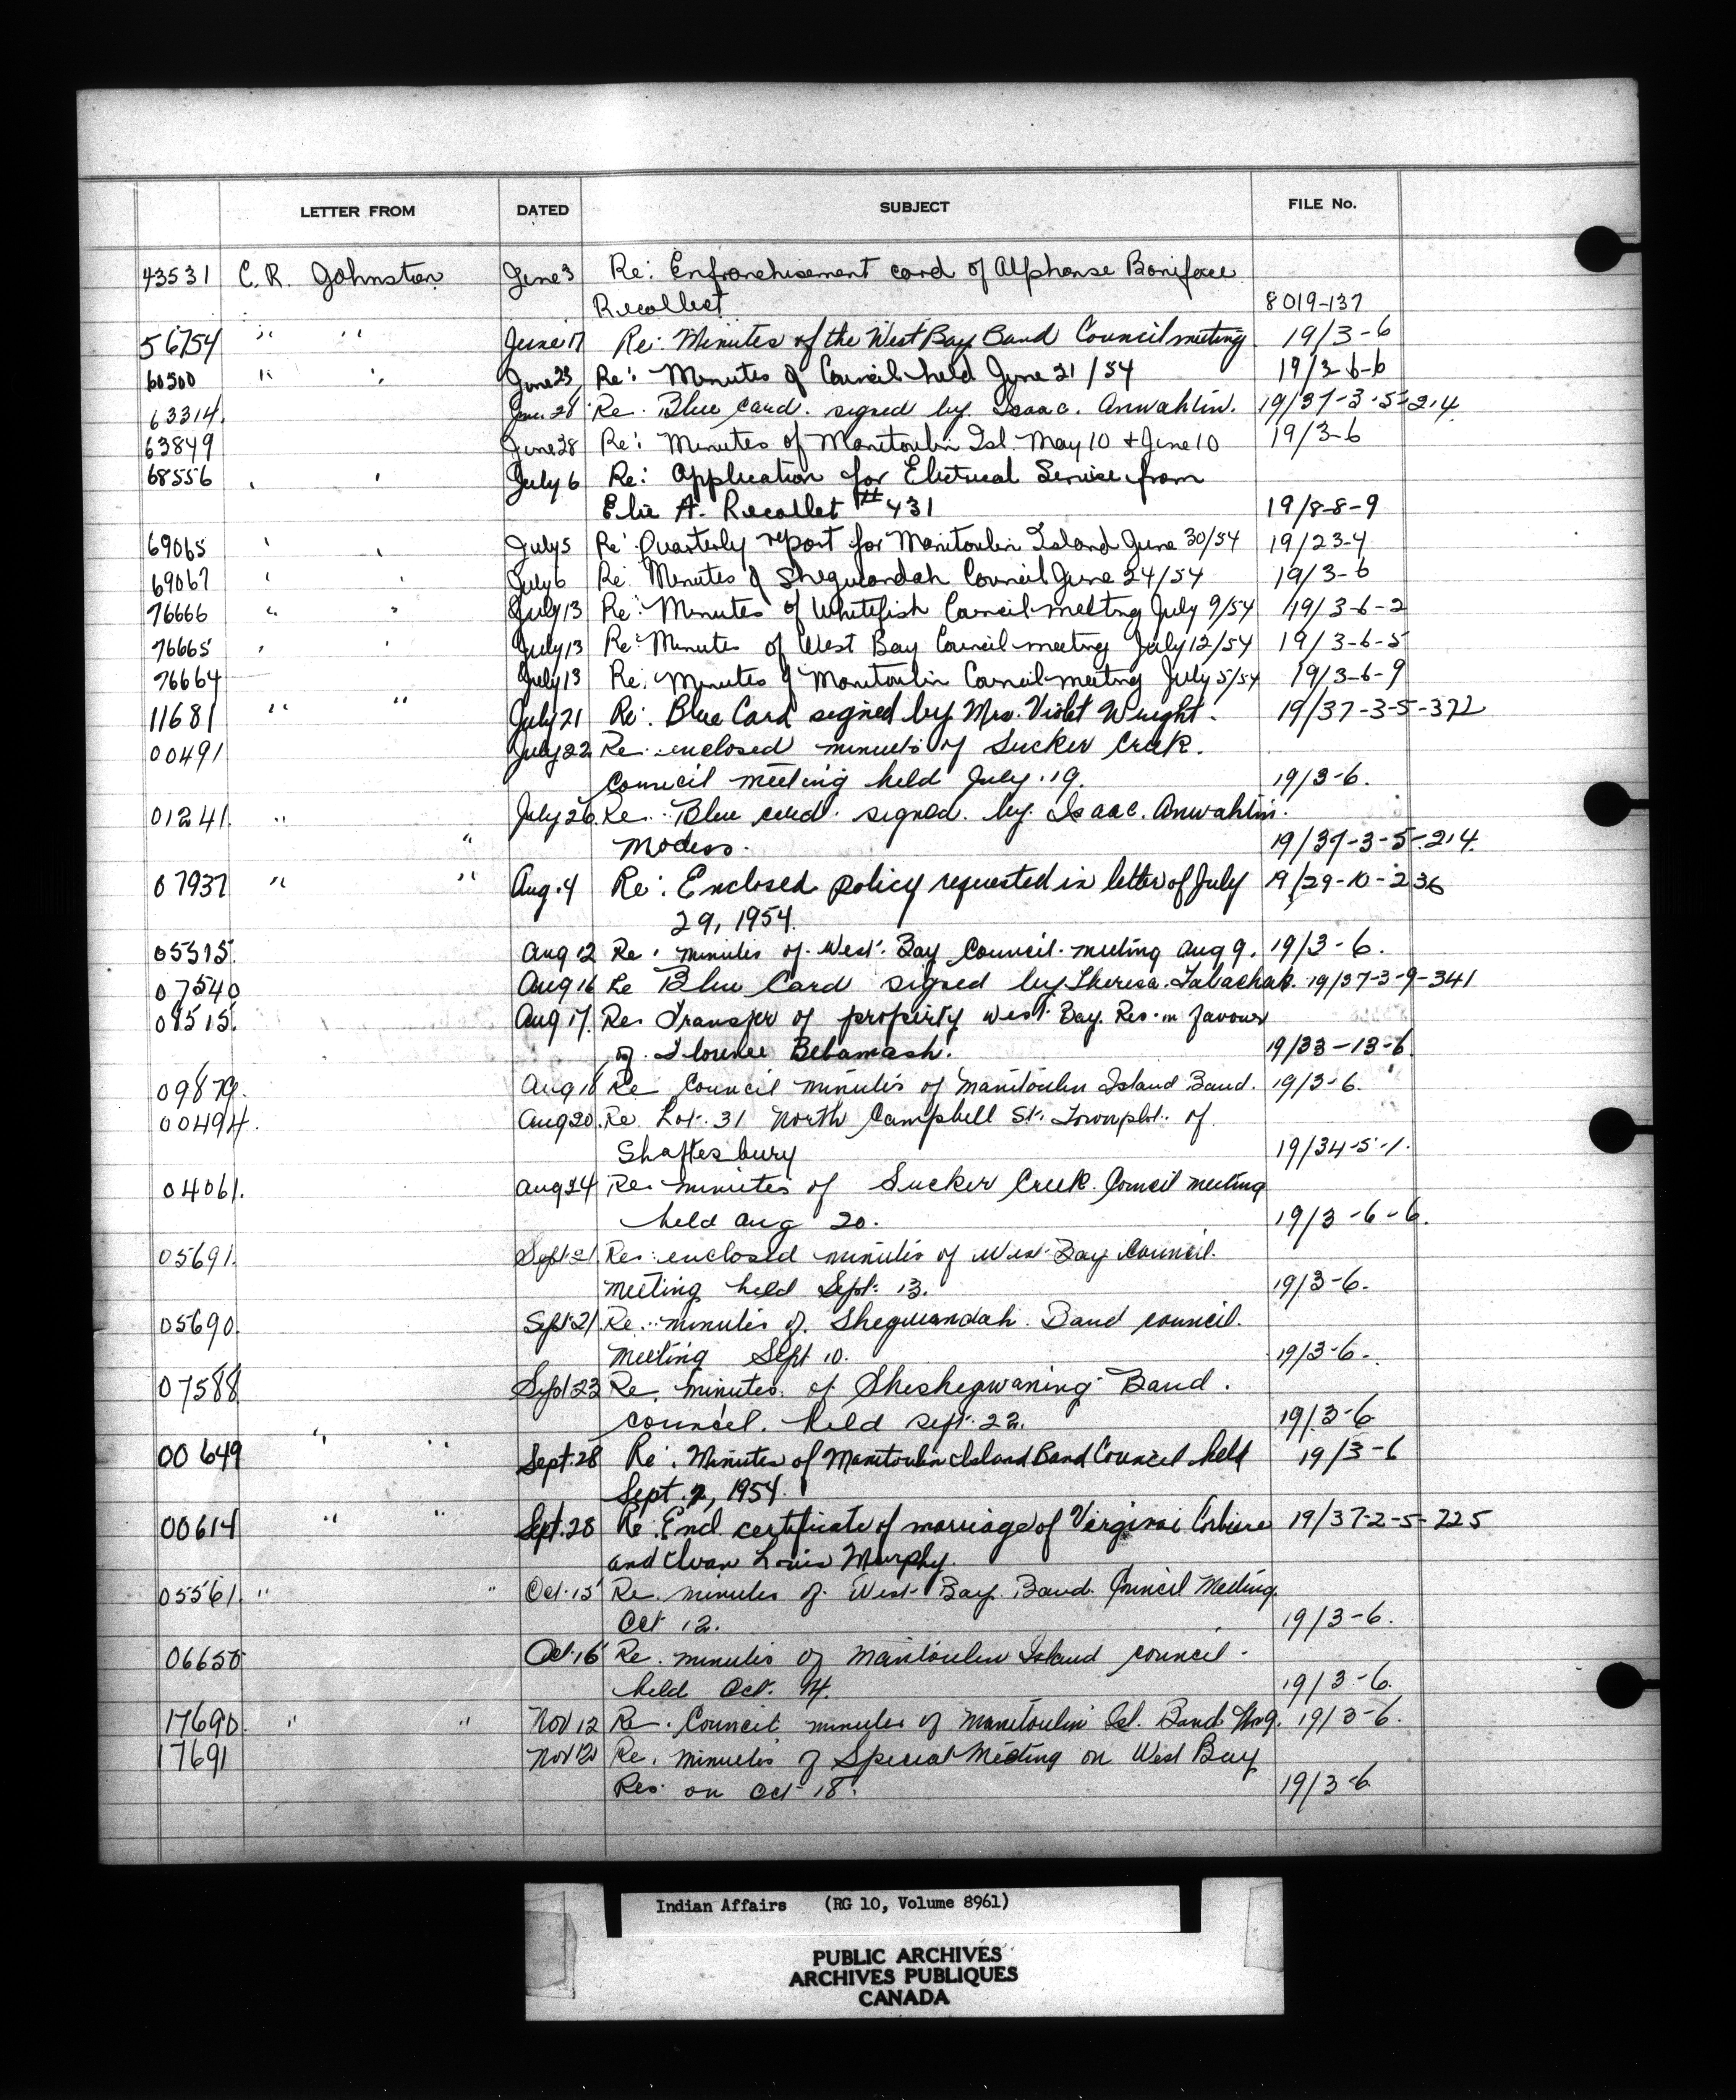 LETTER FROM DATED SUBJECT FILE No.
43531 C.R. Johnston June 3 Re: Enfranchisement card of Alphonse Boniface
Recollect 8019-137
56754 " " June 17 Re: Minutes of the West Bay Band Council meeting 19/3-6
60500 " " June 23 Re: Minutes of Council held June 21/54 19/3-6-6
63314. June 28 Re. Blue Card. signed by. Isaac. Anwahtin. 19/37-3-5-214
63849 June 28 Re: Minutes of Manitoulin Isl. May 10 + June 10 19/3-6
68556 " " July 6 Re: Application for Electrical Service from
Elie A. Recollet # 431 19/8-8-9
69065 " " July 5 Re: Quarterly report for Manitoulin Island June 30/54 19/23-4
69067 " " July 6 Re: Minutes of Sheguiandah Council June 24/54 19/3-6
76666 " " July 13 Re: Minutes of Whitefish Council meeting July 9/54 19/3-6-2
76665 " " July 13 Re: Minutes of West Bay Council meeting July 12/54 19/3-6-5
76664 July 13 Re: Minutes of Manitoulin Council meeting July 5/54 19/3-6-9
11681 " " July 21 Re: Blue Card signed by Mrs. Violet Wright. 19/37-3-5-372
00491 July 22 Re: enclosed minutes of Sucker Creek.
Council meeting held July. 19. 19/3-6.
01241. " July 26 Re. Blue card. signed. by. Isaac. Anwahtin.
" Modess. 19/37-3-5-214.
07937 " " Aug. 4 Re: Enclosed policy requested in letter of July 19/29-10-236
29, 1954.
05515. Aug 12 Re. minutes of West. Bay Council. meeting Aug 9. 19/3-6.
07540 Aug 16 Re Blue Card signed by Theresa. Tabachak. 19/37-3-9-341
08515. Aug 17. Re. Transfer of property West. Bay. Res. in favour
of. Florence Bebamash. 19/33-13-6
09879. Aug 18 Re Council minutes of Manitoulin Island Band. 19/3-6.
00494. Aug 20. Re Lot. 31 North Campbell St. Townplot. of
Shaftesbury 19/34-5-1.
04061. Aug 24 Re minutes of Sucker Creek. Council meeting
held Aug 20. 19/3-6-6.
05691. Sept 21 Re: enclosed minutes of West. Bay Council.
meeting held Sept. 13. 19/3-6.
05690. Sept 21 Re: minutes of. Sheguiandah. Band council.
meeting Sept 10. 19/3-6-.
07588 Sept 23 Re. minutes. of Sheshegwaning Band.
council. held Sept. 22. 19/3-6
00649 " " Sept. 28 Re: Minutes of Manitoulin Island Band Council held 19/3-6
Sept. 2, 1954.
00614 " " Sept. 28 Re: Encl certificate of marriage of Virginia Corbiere 19/37-2-5-225
and Ivan Louis Murphy.
05561. " " Oct. 15 Re. minutes of. West Bay. Band. Council Meeting
Oct 12. 19/3-6.
06650 Oct. 16 Re. minutes of Manitoulin Island council.
held Oct. 4. 19/3-6.
17690. " " Nov 12 Re. Council minutes of Manitoulin Isl. Band. Nov 9. 19/3-6.
17691 Nov 12 Re. minutes of Special Meeting on West Bay
Res. on Oct 18. 19/3-6
Indian Affairs (RG 10, Volume 8961)
PUBLIC ARCHIVES
ARCHIVES PUBLIQUES
CANADA